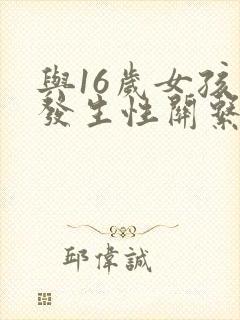 與16歲女孩
發生性關繫
邱偉誠